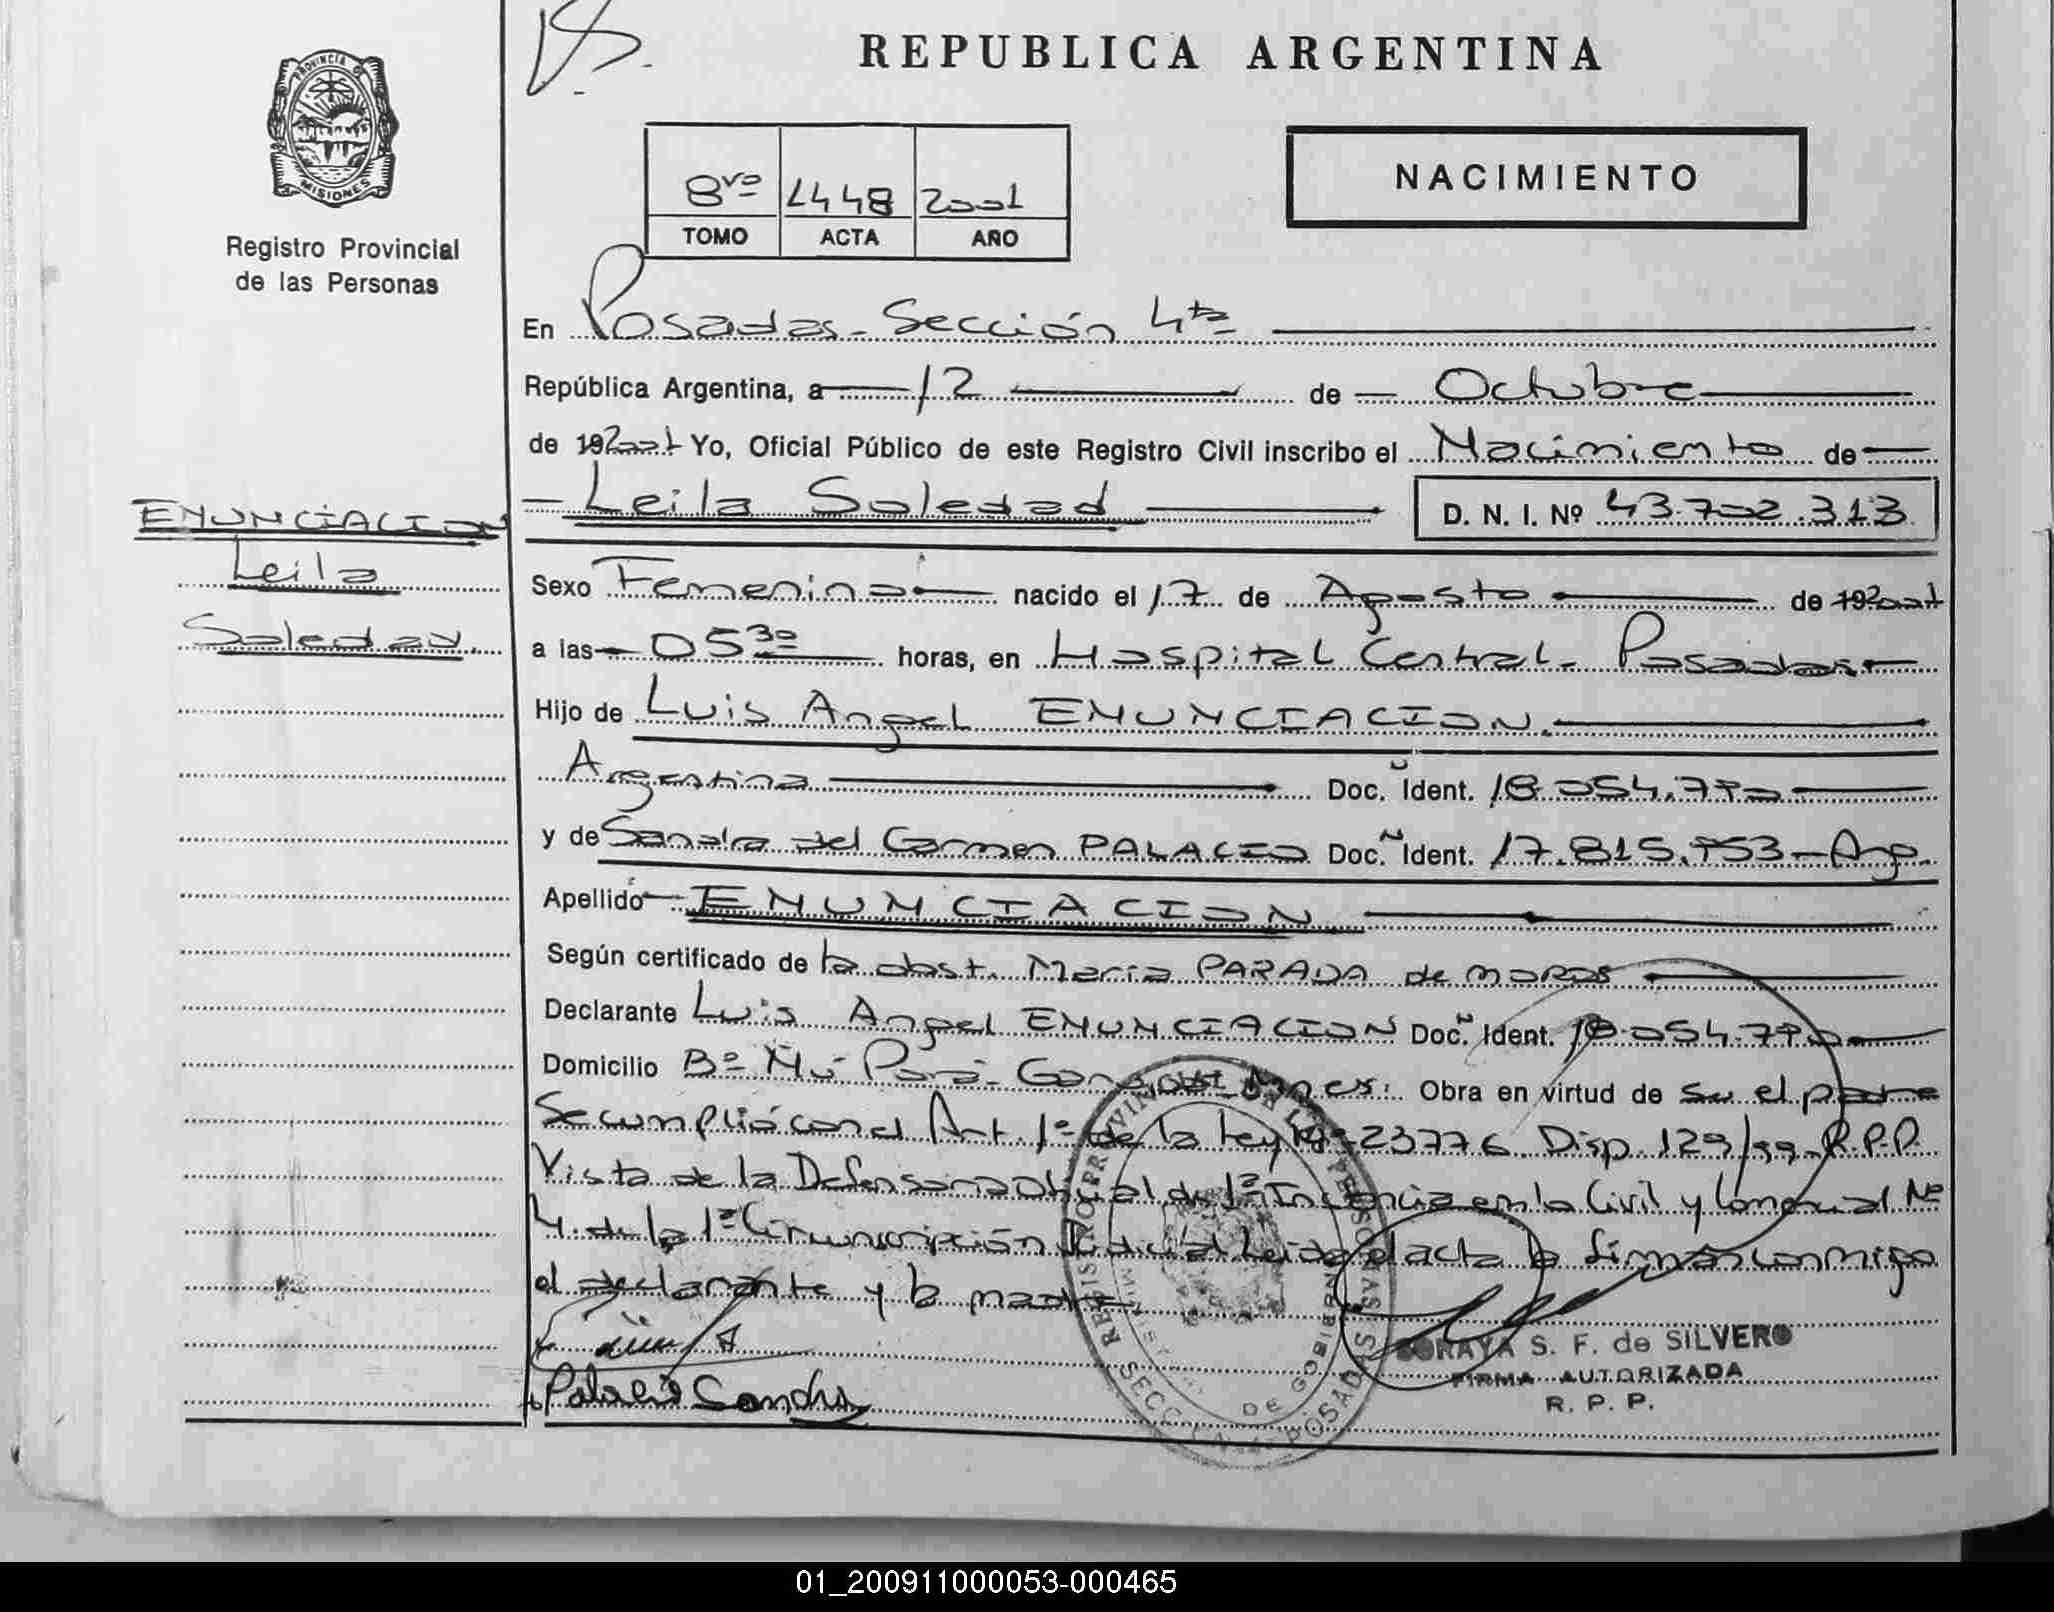 REPUBLICA ARGENTINA
PROVINCIA DE
MISIONES
Registro Provincial
de las Personas
8vo 1448 2001
TOMO ACTA AÑO
NACIMIENTO
En Posadas - Sección 4ta
República Argentina, a 12 de Octubre
de 192001 Yo, Oficial Público de este Registro Civil inscribo el Nacimiento de
Leila Soledad D. N. I. Nº 43.702.313
ENUNCIACION
Leila
Soledad.
Sexo Femenino nacido el 17 de Agosto de 192001
a las 05 30 horas, en Hospital Central - Posadas
Hijo de Luis Angel ENUNCIACION.
Argentina Doc. Ident. 18.054.790
y de Sandra del Carmen PALACIO Doc. Ident. 17.815.953 - Arg.
Apellido ENUNCIACION
Según certificado de la obst. María PARADA de
Declarante Luis Angel ENUNCIACION Doc. Ident. 18.054.790
Domicilio Bº Ñu Porá - Mnes. Obra en virtud de su el padre
Se cumplió con el Art. 1º de la Ley Nº 23776 Disp. 129/99 - R.P.P.
Vista de la Defensoria Oficial de 1ª Instancia en lo Civil y Comercial Nº
4 de la 1ª Circunscripción Judicial Leida el acta la firman conmigo
el declarante y la madre.
Palacio Sandra
REGISTRO PROVINCIAL DE LAS PERSONAS
MINISTERIO DE GOBIERNO
SECCION POSADAS
SORAYA S. F. de SILVERO
FIRMA AUTORIZADA
R. P. P.
01_200911000053-000465